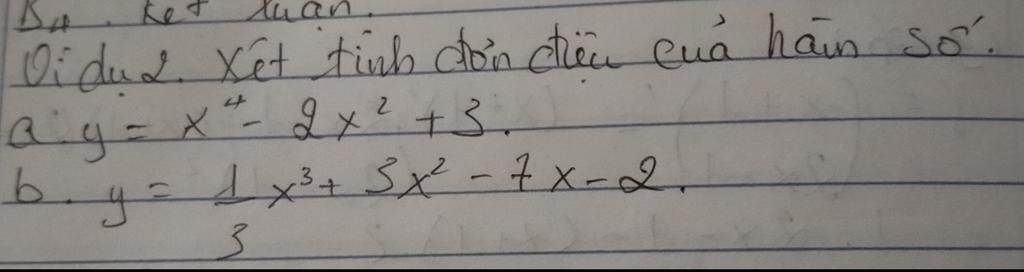 B4. Kết luận.
Ví dụ 2. Xét tính đơn điệu của hàm số.
a. y = x⁴ - 2x² + 3.
b. y = 1/3 x³ + 3x² - 7x - 2.